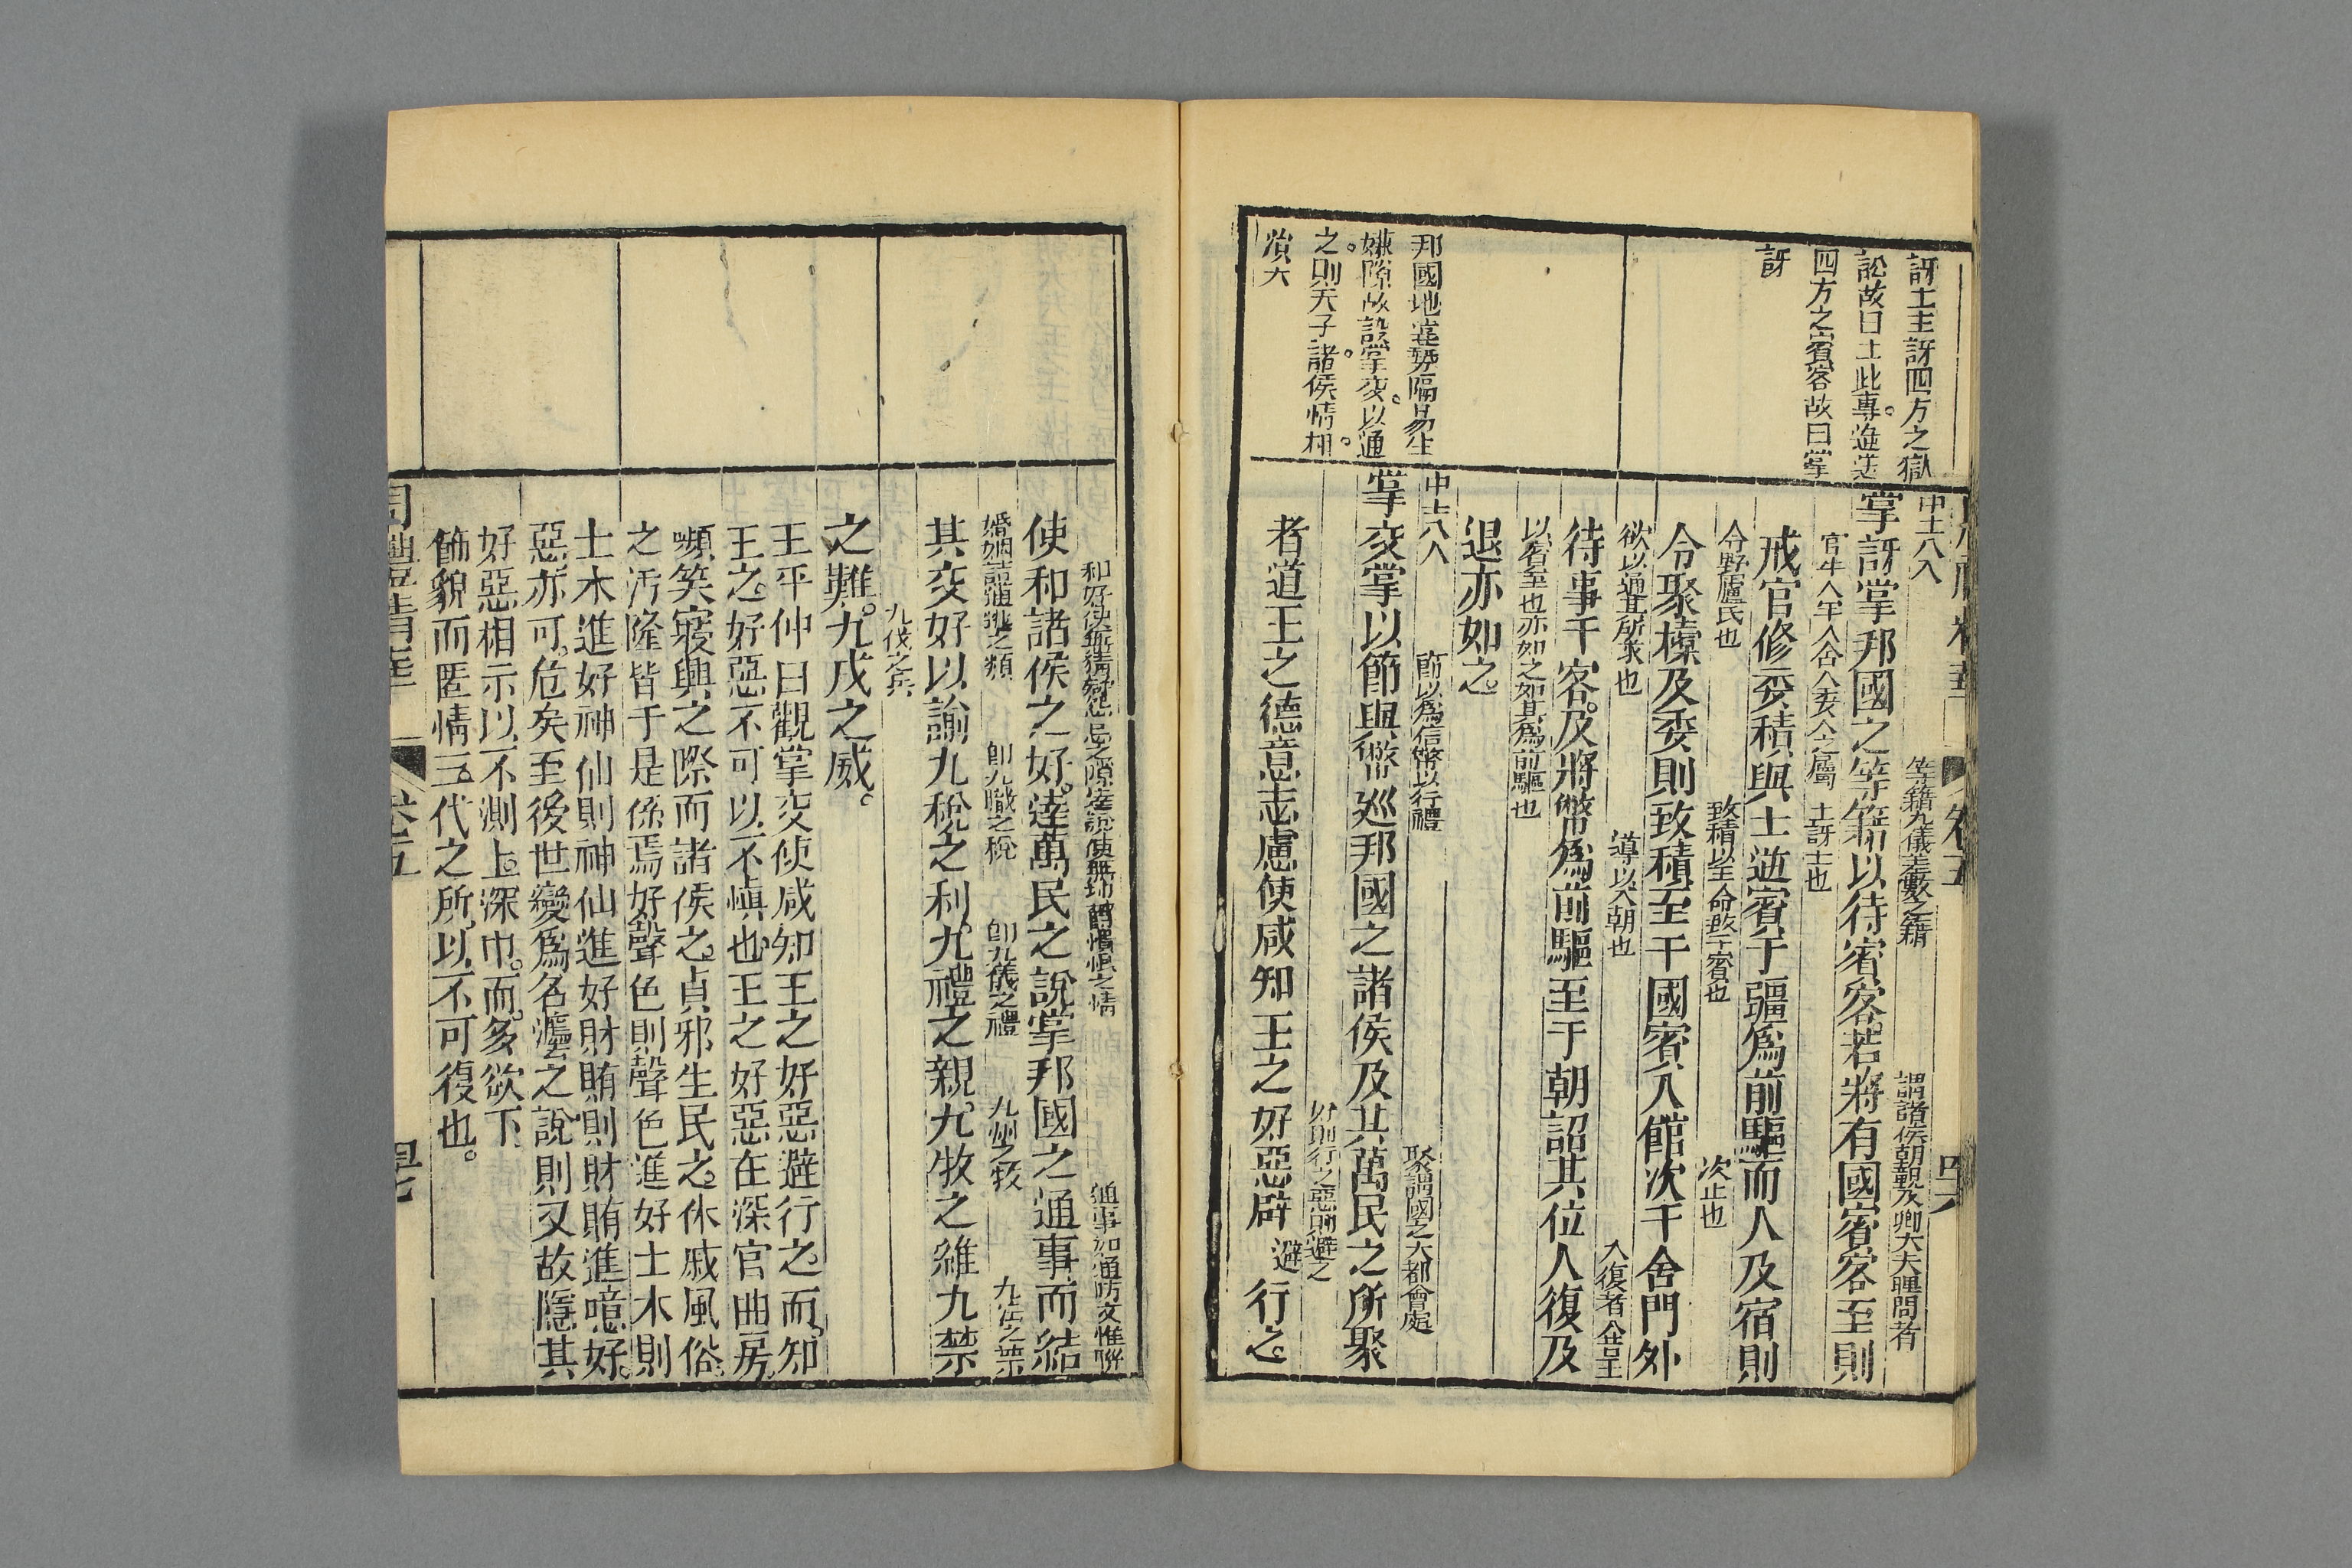 訝士主訝四方之獄
訟故曰士此專迎送
四方之賓客故曰掌
訝
中士八人
等籍九儀差數之籍
謂諸侯朝覲及卿大夫聘問者
掌訝掌邦國之等籍以待賓客若將有國賓客至則
官牛人羊人舍人委人之屬
士訝士也
戒官修委積與士逆賓于疆爲前驅而入及宿則
令野廬氏也
致積以王命致于賓也
次止也
令聚橐及委則致積至于國賓入館次于舍門外
欲以通其所求也
導以入朝也
入復者入告王
待事于客及將幣爲前驅至于朝詔其位入復及
以賓至也亦如之如其爲前驅也
退亦如之
邦國地遠勢隔易生
嫌隙故設掌交以通
之則天子諸侯情相
浹矣
中士八人
節以爲信幣以行禮
聚謂國之大都會處
掌交掌以節與幣巡邦國之諸侯及其萬民之所聚
好則行之惡則避之
者道王之德意志慮使咸知王之好惡辟避行之
通事如通防交惟聘
使和諸侯之好達萬民之說掌邦國之通事而結
卽九職之稅
卽九儀之禮
九州之牧
九法之禁
其交好以諭九稅之利九禮之親九牧之維九禁
九伐之兵
之難九戎之威
王平仲曰觀掌交使咸知王之好惡避行之而知
王之好惡不可以不愼也王之好惡在深宮曲房
嚬笑寢興之際而諸侯之貞邪生民之休戚風俗
之汚隆皆于是係焉好聲色則聲色進好土木則
土木進好神仙則神仙進好財賄則財賄進噫好
惡亦可危矣至後世變爲名灋之說則又故隱其
好惡相示以不測上深巾而多欲下
飾貌而匿情三代之所以不可復也
卷五